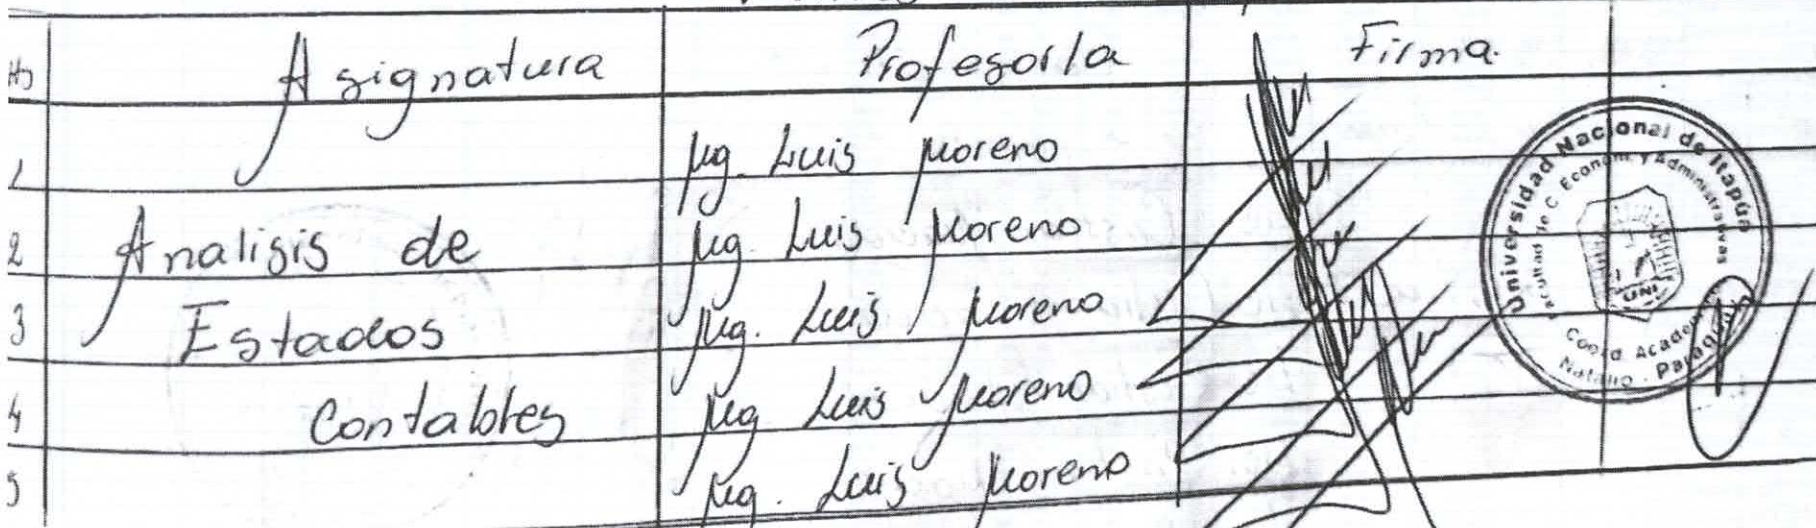 Hs Asignatura Profesor/a Firma.
1 Mg. Luis Moreno
2 Analisis de Mg. Luis Moreno
3 Estados Mg. Luis Moreno
4 Contables Mg. Luis Moreno
5 Mg. Luis Moreno
Universidad Nacional de Itapúa
Facultad de C. Econom. y Administrativas
UNI
Coord. Academ
Natalio - Paraguay